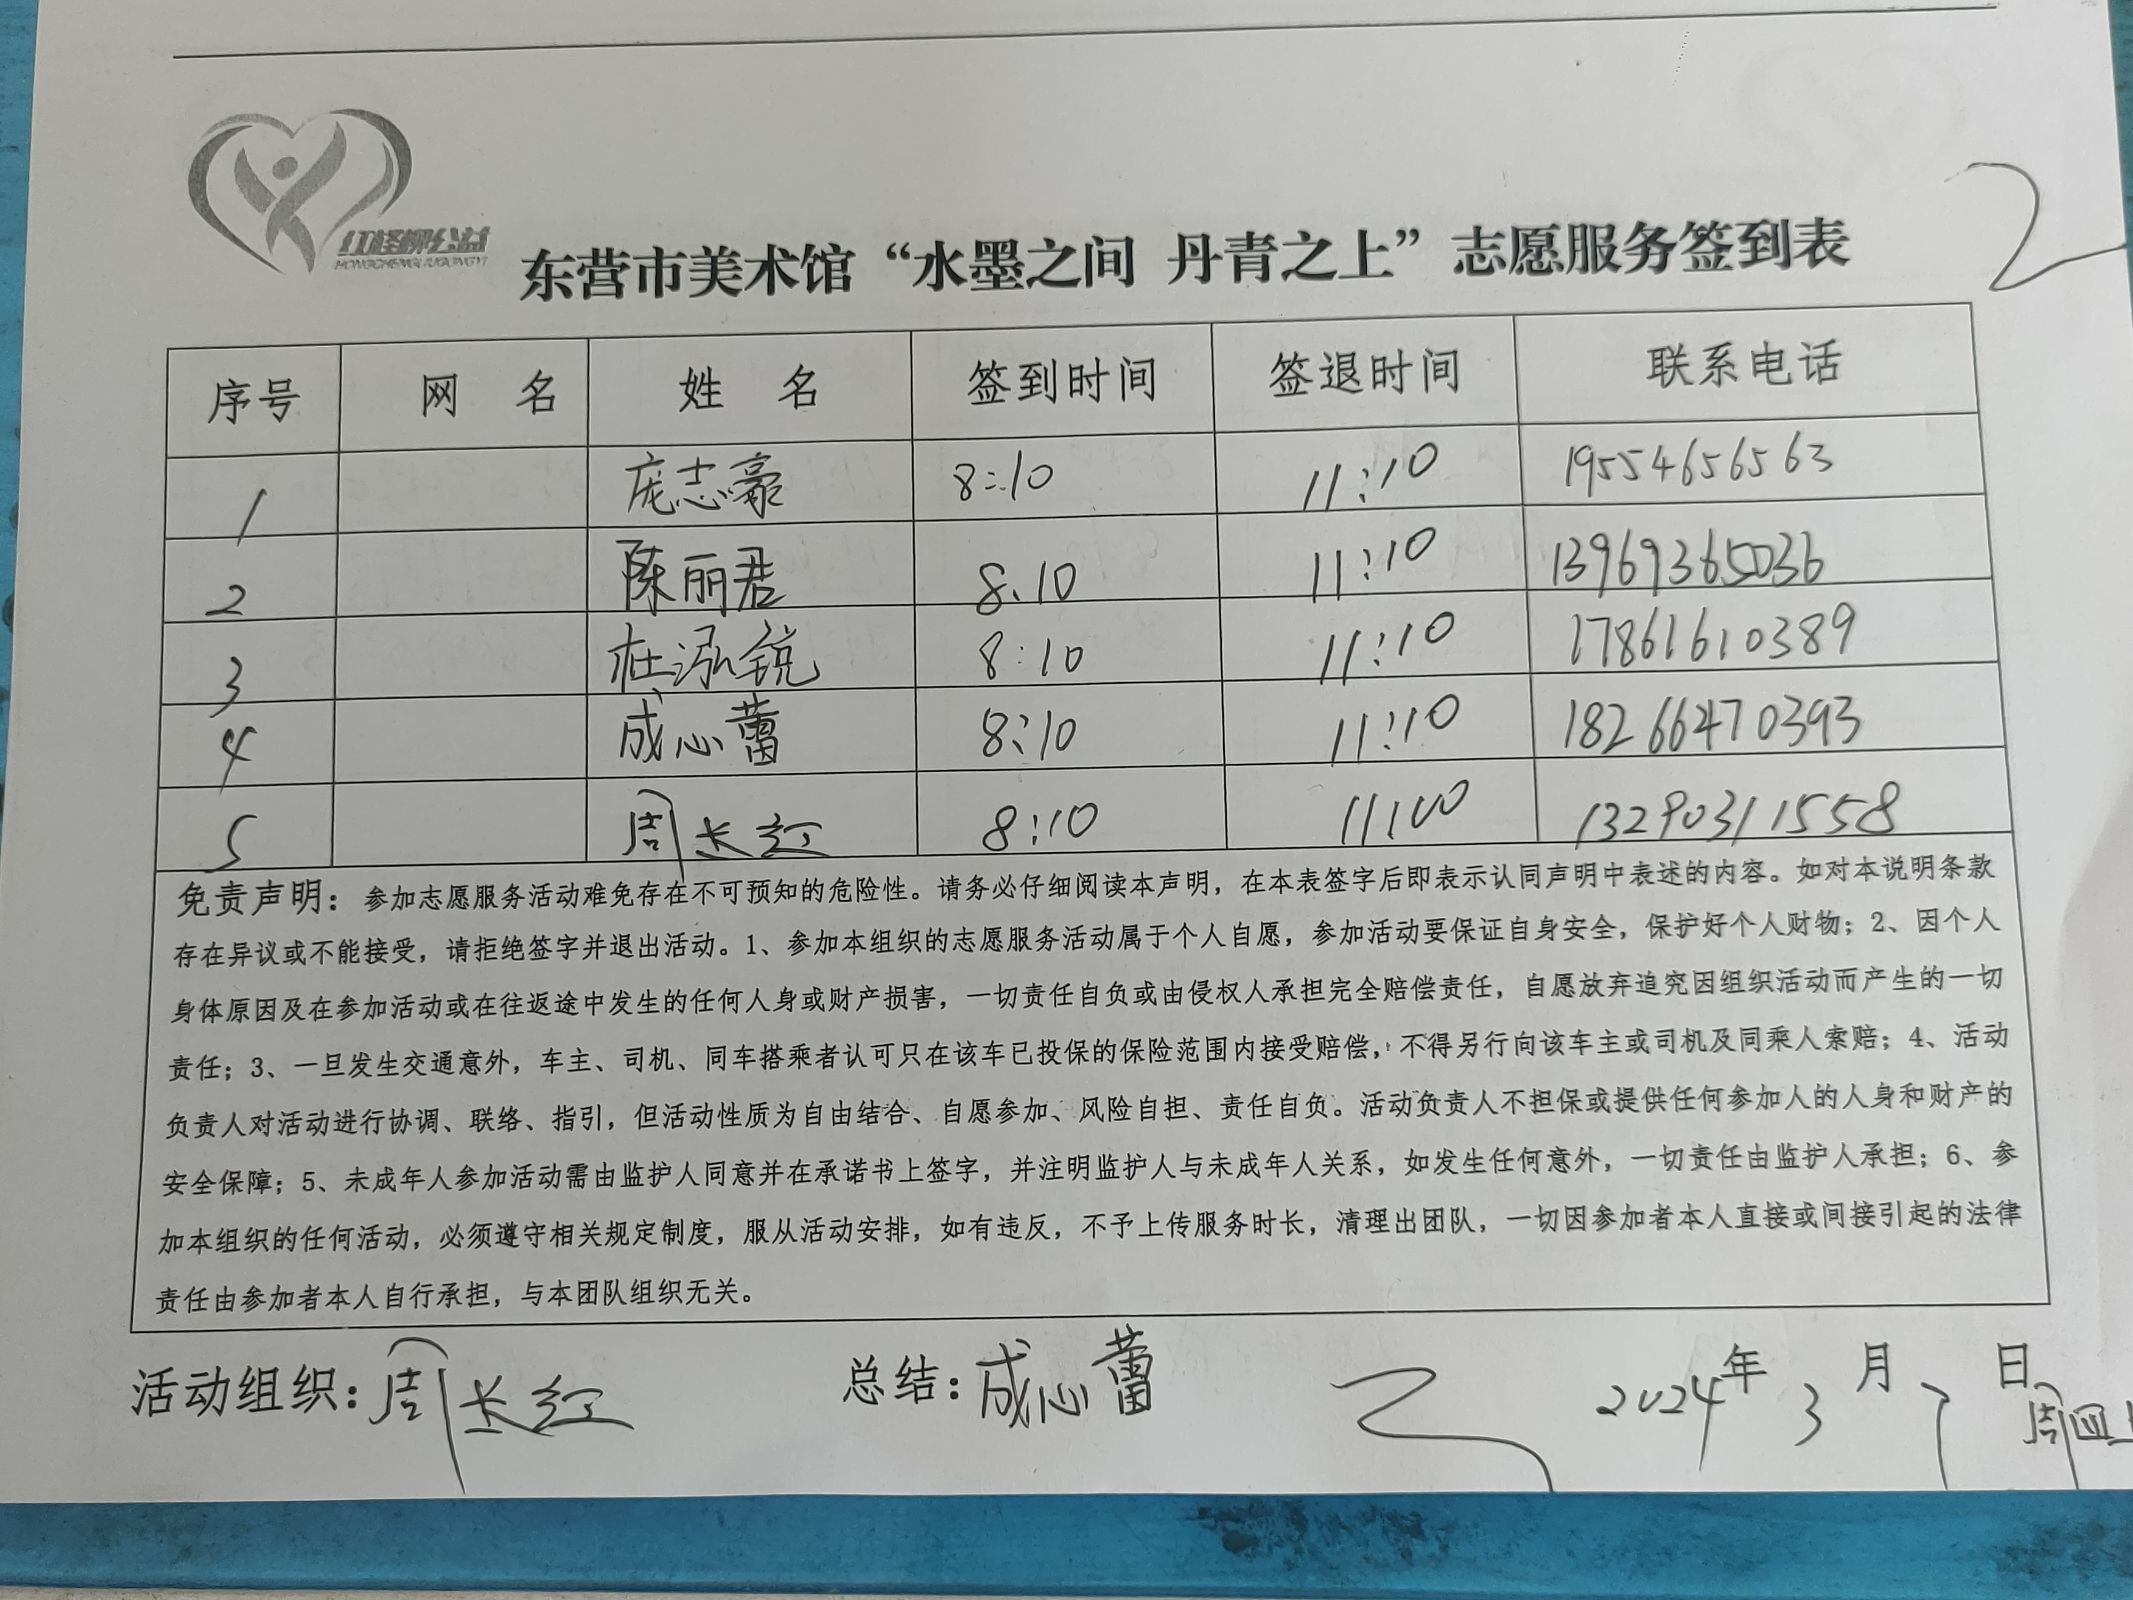 红柽柳公益
HONGCHENGLIUGONGYI
2
东营市美术馆“水墨之间 丹青之上”志愿服务签到表
序号 网 名 姓 名 签到时间 签退时间 联系电话
1 庞志豪 8:10 11:10 19554656563
2 陈丽君 8.10 11:10 13969365036
3 杜泓锐 8:10 11:10 17861610389
4 成心蕾 8:10 11:10 18266470393
5 周长红 8:10 11:10 13290311558
免责声明：参加志愿服务活动难免存在不可预知的危险性。请务必仔细阅读本声明，在本表签字后即表示认同声明中表述的内容。如对本说明条款
存在异议或不能接受，请拒绝签字并退出活动。1、参加本组织的志愿服务活动属于个人自愿，参加活动要保证自身安全，保护好个人财物；2、因个人
身体原因及在参加活动或在往返途中发生的任何人身或财产损害，一切责任自负或由侵权人承担完全赔偿责任，自愿放弃追究因组织活动而产生的一切
责任；3、一旦发生交通意外，车主、司机、同车搭乘者认可只在该车已投保的保险范围内接受赔偿，不得另行向该车主或司机及同乘人索赔；4、活动
负责人对活动进行协调、联络、指引，但活动性质为自由结合、自愿参加、风险自担、责任自负。活动负责人不担保或提供任何参加人的人身和财产的
安全保障；5、未成年人参加活动需由监护人同意并在承诺书上签字，并注明监护人与未成年人关系，如发生任何意外，一切责任由监护人承担；6、参
加本组织的任何活动，必须遵守相关规定制度，服从活动安排，如有违反，不予上传服务时长，清理出团队，一切因参加者本人直接或间接引起的法律
责任由参加者本人自行承担，与本团队组织无关。
活动组织：周长红 总结：成心蕾 2024年3月7日 周四上